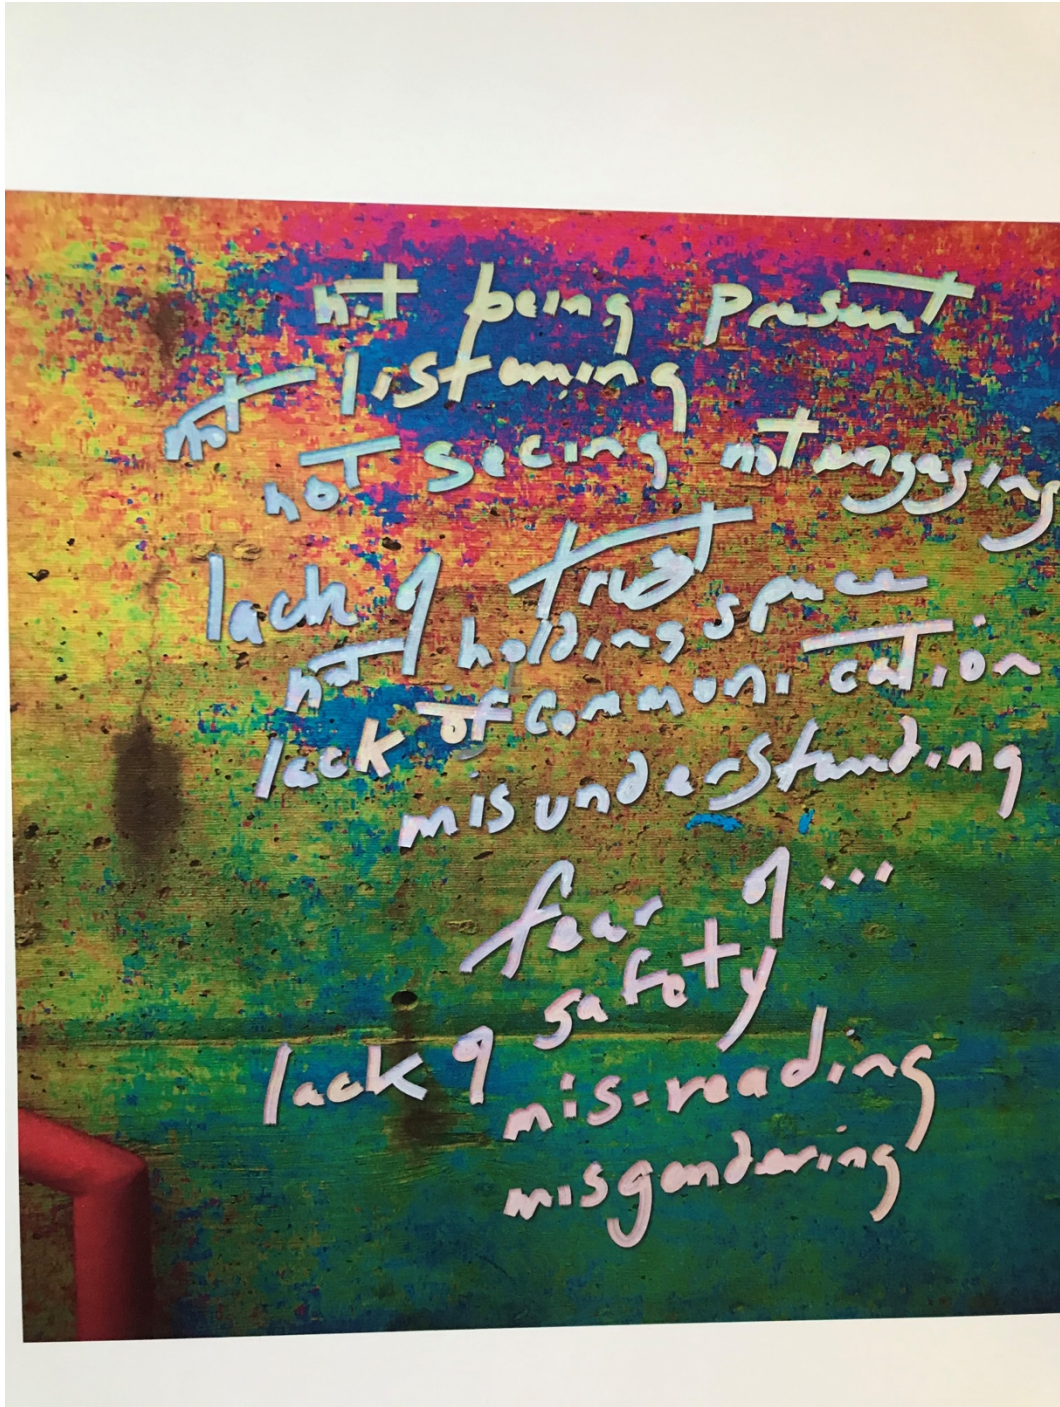 not being present
not listening
not seeing not engaging
lack of trust
not holding space
lack of communication
misunderstanding
fear of ...
lack of safety
mis-reading
misgendering